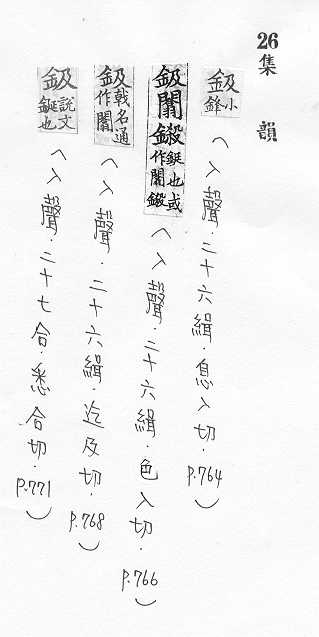 26集韻
鈒小鋒(入聲．二十六緝．息入切．P.764)
鈒闟鈒鎩鋋也或作闟鎩(入聲．二十六緝．色入切．P.766)
鈒戟名通作闟(入聲．二十六緝．迄及切．P.768)
鈒說文鋋也(入聲．二十七合．悉合切．P.771)